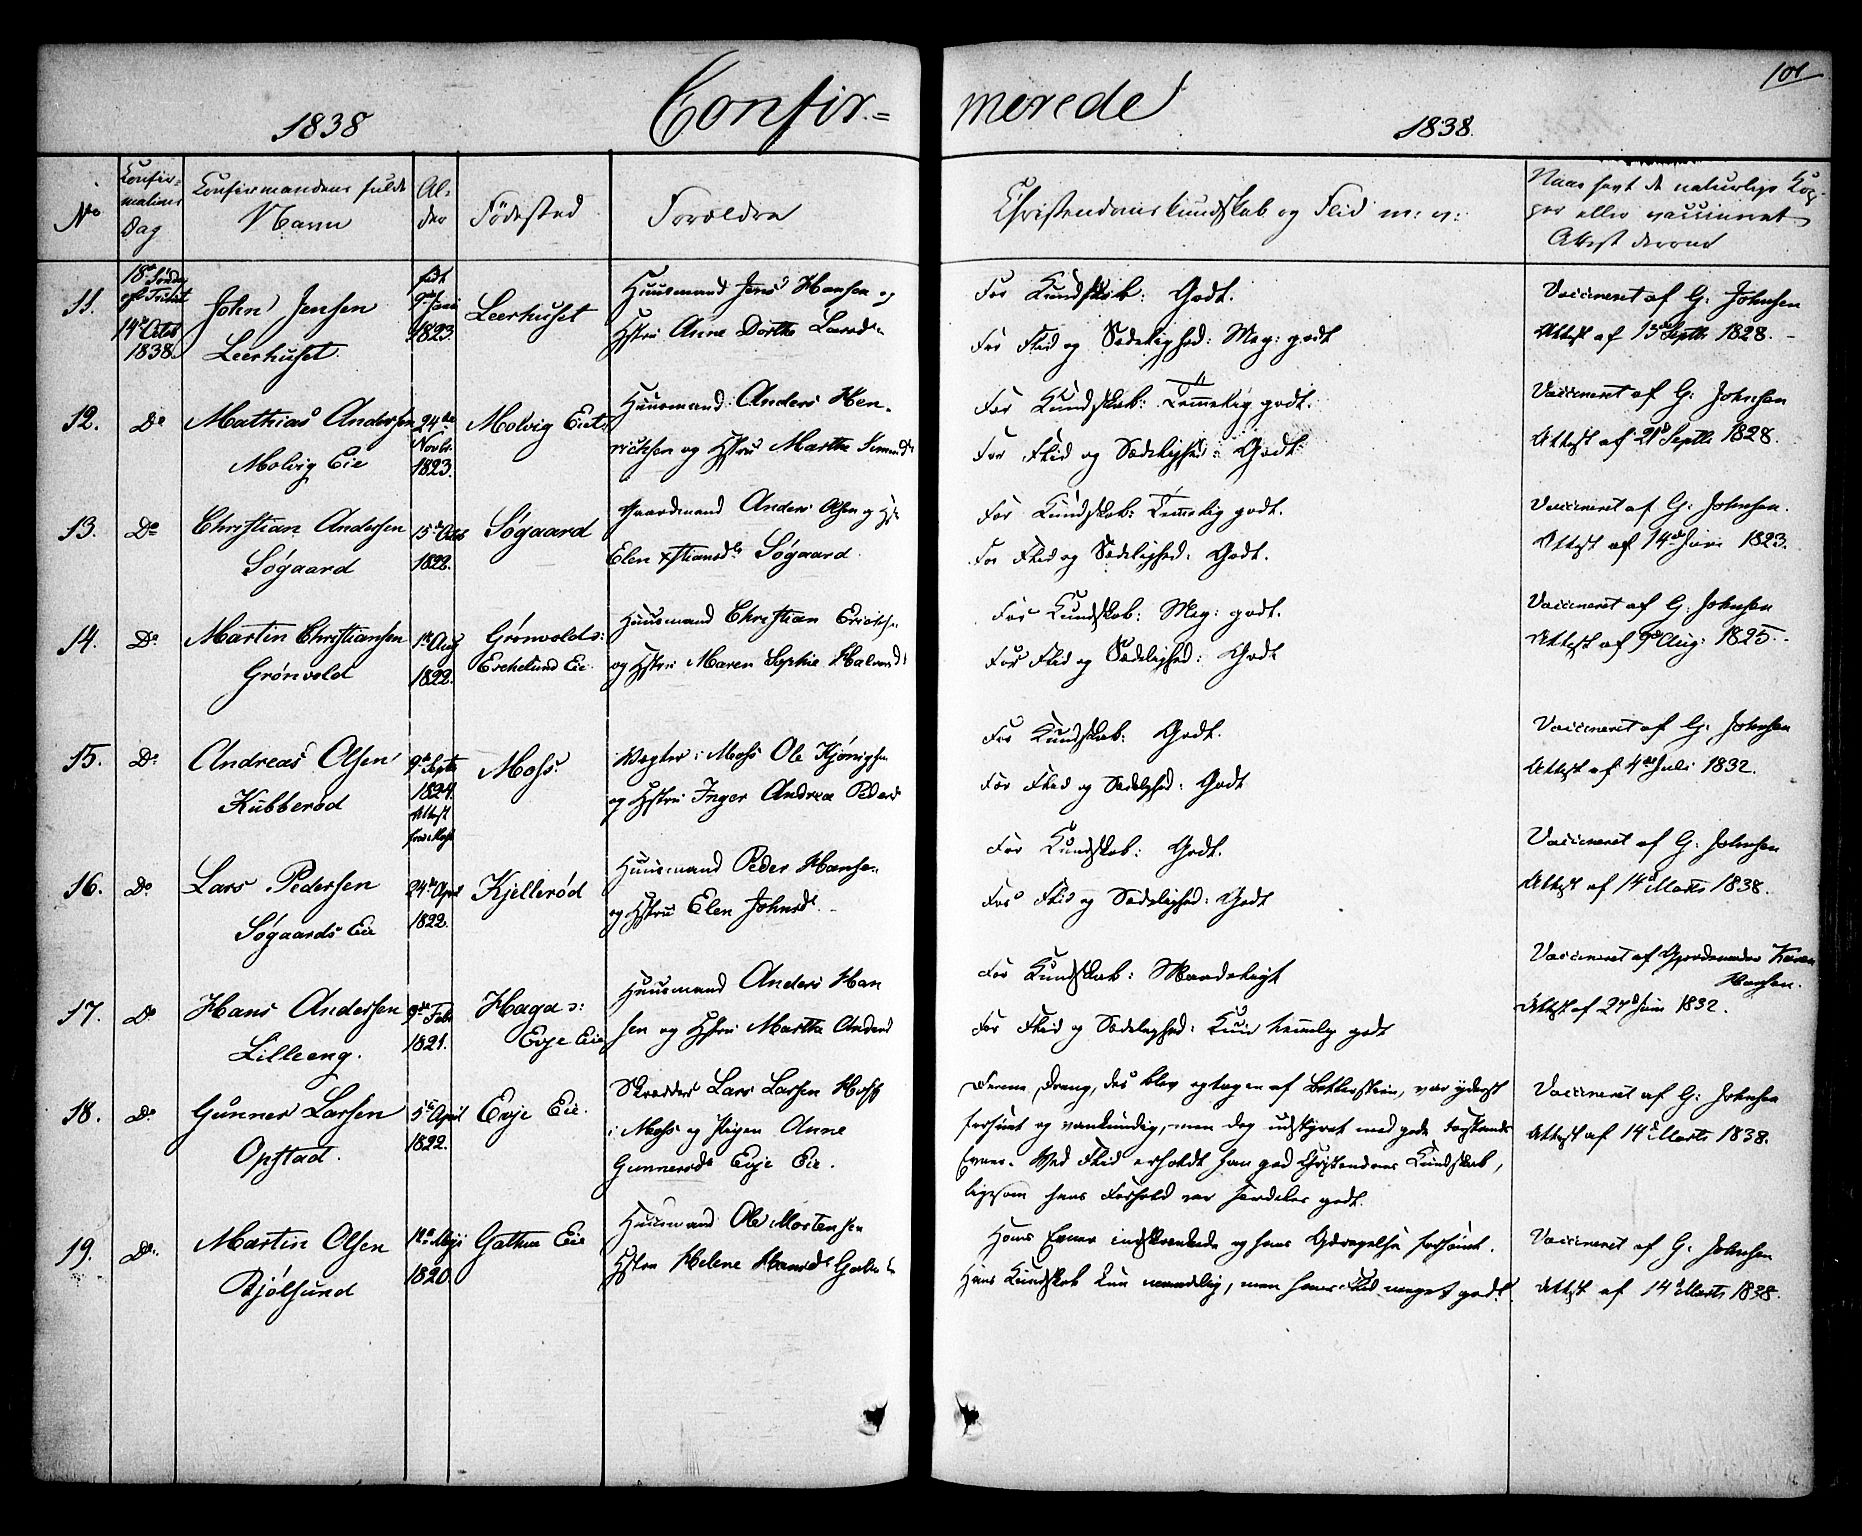 101
1838 Confir= merede 1838.
No
Confir=
mations
Dag
Confirmandens fulde
Navn
Al=
der
Fødested
Forældre
Christendomskundskab og Flid m: v:
Naar havt de naturlige Kop=
per eller vaccineret
Attest derom
11.
18de Søndag
eft Trinit
14de Octob
1838.
John Jensen
Leerhuset.
født
9de Juni
1823.
Leerhuset
Huusmand Jens Hansen og
Hstru Anne Dorthe Larsd.
For Kundskab: Godt.
For Flid og Sædelighed: Meg: godt
Vaccineret af G: Johnsen
Attest af 13de Septb. 1828.
12.
Do
Mathias Andersen
Molvig Eie
24de
Novbr.
1823.
Molvig Eiet
Huusmand Anders Hen-
richsen og Hstru Marthe Simensd
For Kundskab: Temmelig godt.
For Flid og Sædelighed: Godt
Vaccineret af G: Johnsen
Attest af 21de Septb. 1828.
13.
Do
Christian Andersen
Søgaard
15de Octob
1822.
Søgaard
Gaardmand Anders Olsen og Hst
Elen Xstiansdr Søgaard.
For Kundskab: Temmelig godt.
For Flid og Sædelighed: Godt.
Vaccineret af G: Johnsen.
Attest af 14de Juni 1823.
14.
Do
Martin Christiansen
Grønvold
1ste Aug
1822.
Grønvold:
Eschelund Eie
Huusmand Christian Ericks.
og Hstru Maren Sophie Halvorsd
For Kundskab: Meg: godt.
For Flid og Sædelighed: Godt
Vaccineret af G: Johnsen
Attest af 9de Aug: 1825.
15.
Do
Andreas Olsen
Kubberød
9de Septb
1824.
Attest
fra Moss
Moss.
Vegter i Moss Ole Kjønigsen
og Hstru Inger Andrea Pedersd
For Kundskab: Godt.
For Flid og Sædelighed: Godt
Vaccineret af G: Johnsen
Attest af 4de Juli 1832.
16.
Do
Lars Pedersen
Søgaards Eie
24de April
1822.
Kjellerød
Huusmand Peder Hansen
og Hstru Elen Johnsdr.
For Kundskab: Godt.
For Flid og Sædelighed: Godt
Vaccineret af G: Johnsen
Attest af 14de Marts 1838.
17.
Do
Hans Andersen
Lilleeng.
9de Febr
1821.
Haga o:
Evje Eie
Huusmand Anders Han
sen og Hstru Marthe Andersd
For Kundskab: Maadeligt
For Flid og Sædelighed: Kun temmelig godt
Vaccineret af Gjordemoder Karen
Hansen.
Attest af 27de Juni 1832.
18.
Do
Gunner Larsen
Opstad.
5te April
1822.
Evje Eie.
Skrædder Lars Larsen Hoff
i Moss og Pigen Anne
Gunnersdr Evje Eie.
Denne Dreng, der blev optagen af Betlerstien, var yderst
forsømt og vankundig, men dog udstyret med gode Forstands
Evner. Ved Flid erholdt han god Christendoms Kundskab,
ligesom hans Forhold var særdeles godt.
Vaccineret af G: Johnsen
Attest af 14de Marts 1838.
19.
Do
Martin Olsen
Bjølsund
12te Maji
1820.
Gathue Eie
Huusmand Ole Mortensen
Hstru Helene Hansdr
Hans Evner indskrænkede og hans Opdragelse forsømt.
Hans Kundskab kun maadelig, men hans Flid meget godt.
Vaccineret af G: Johnsen
Attest af 14de Marts 1838.